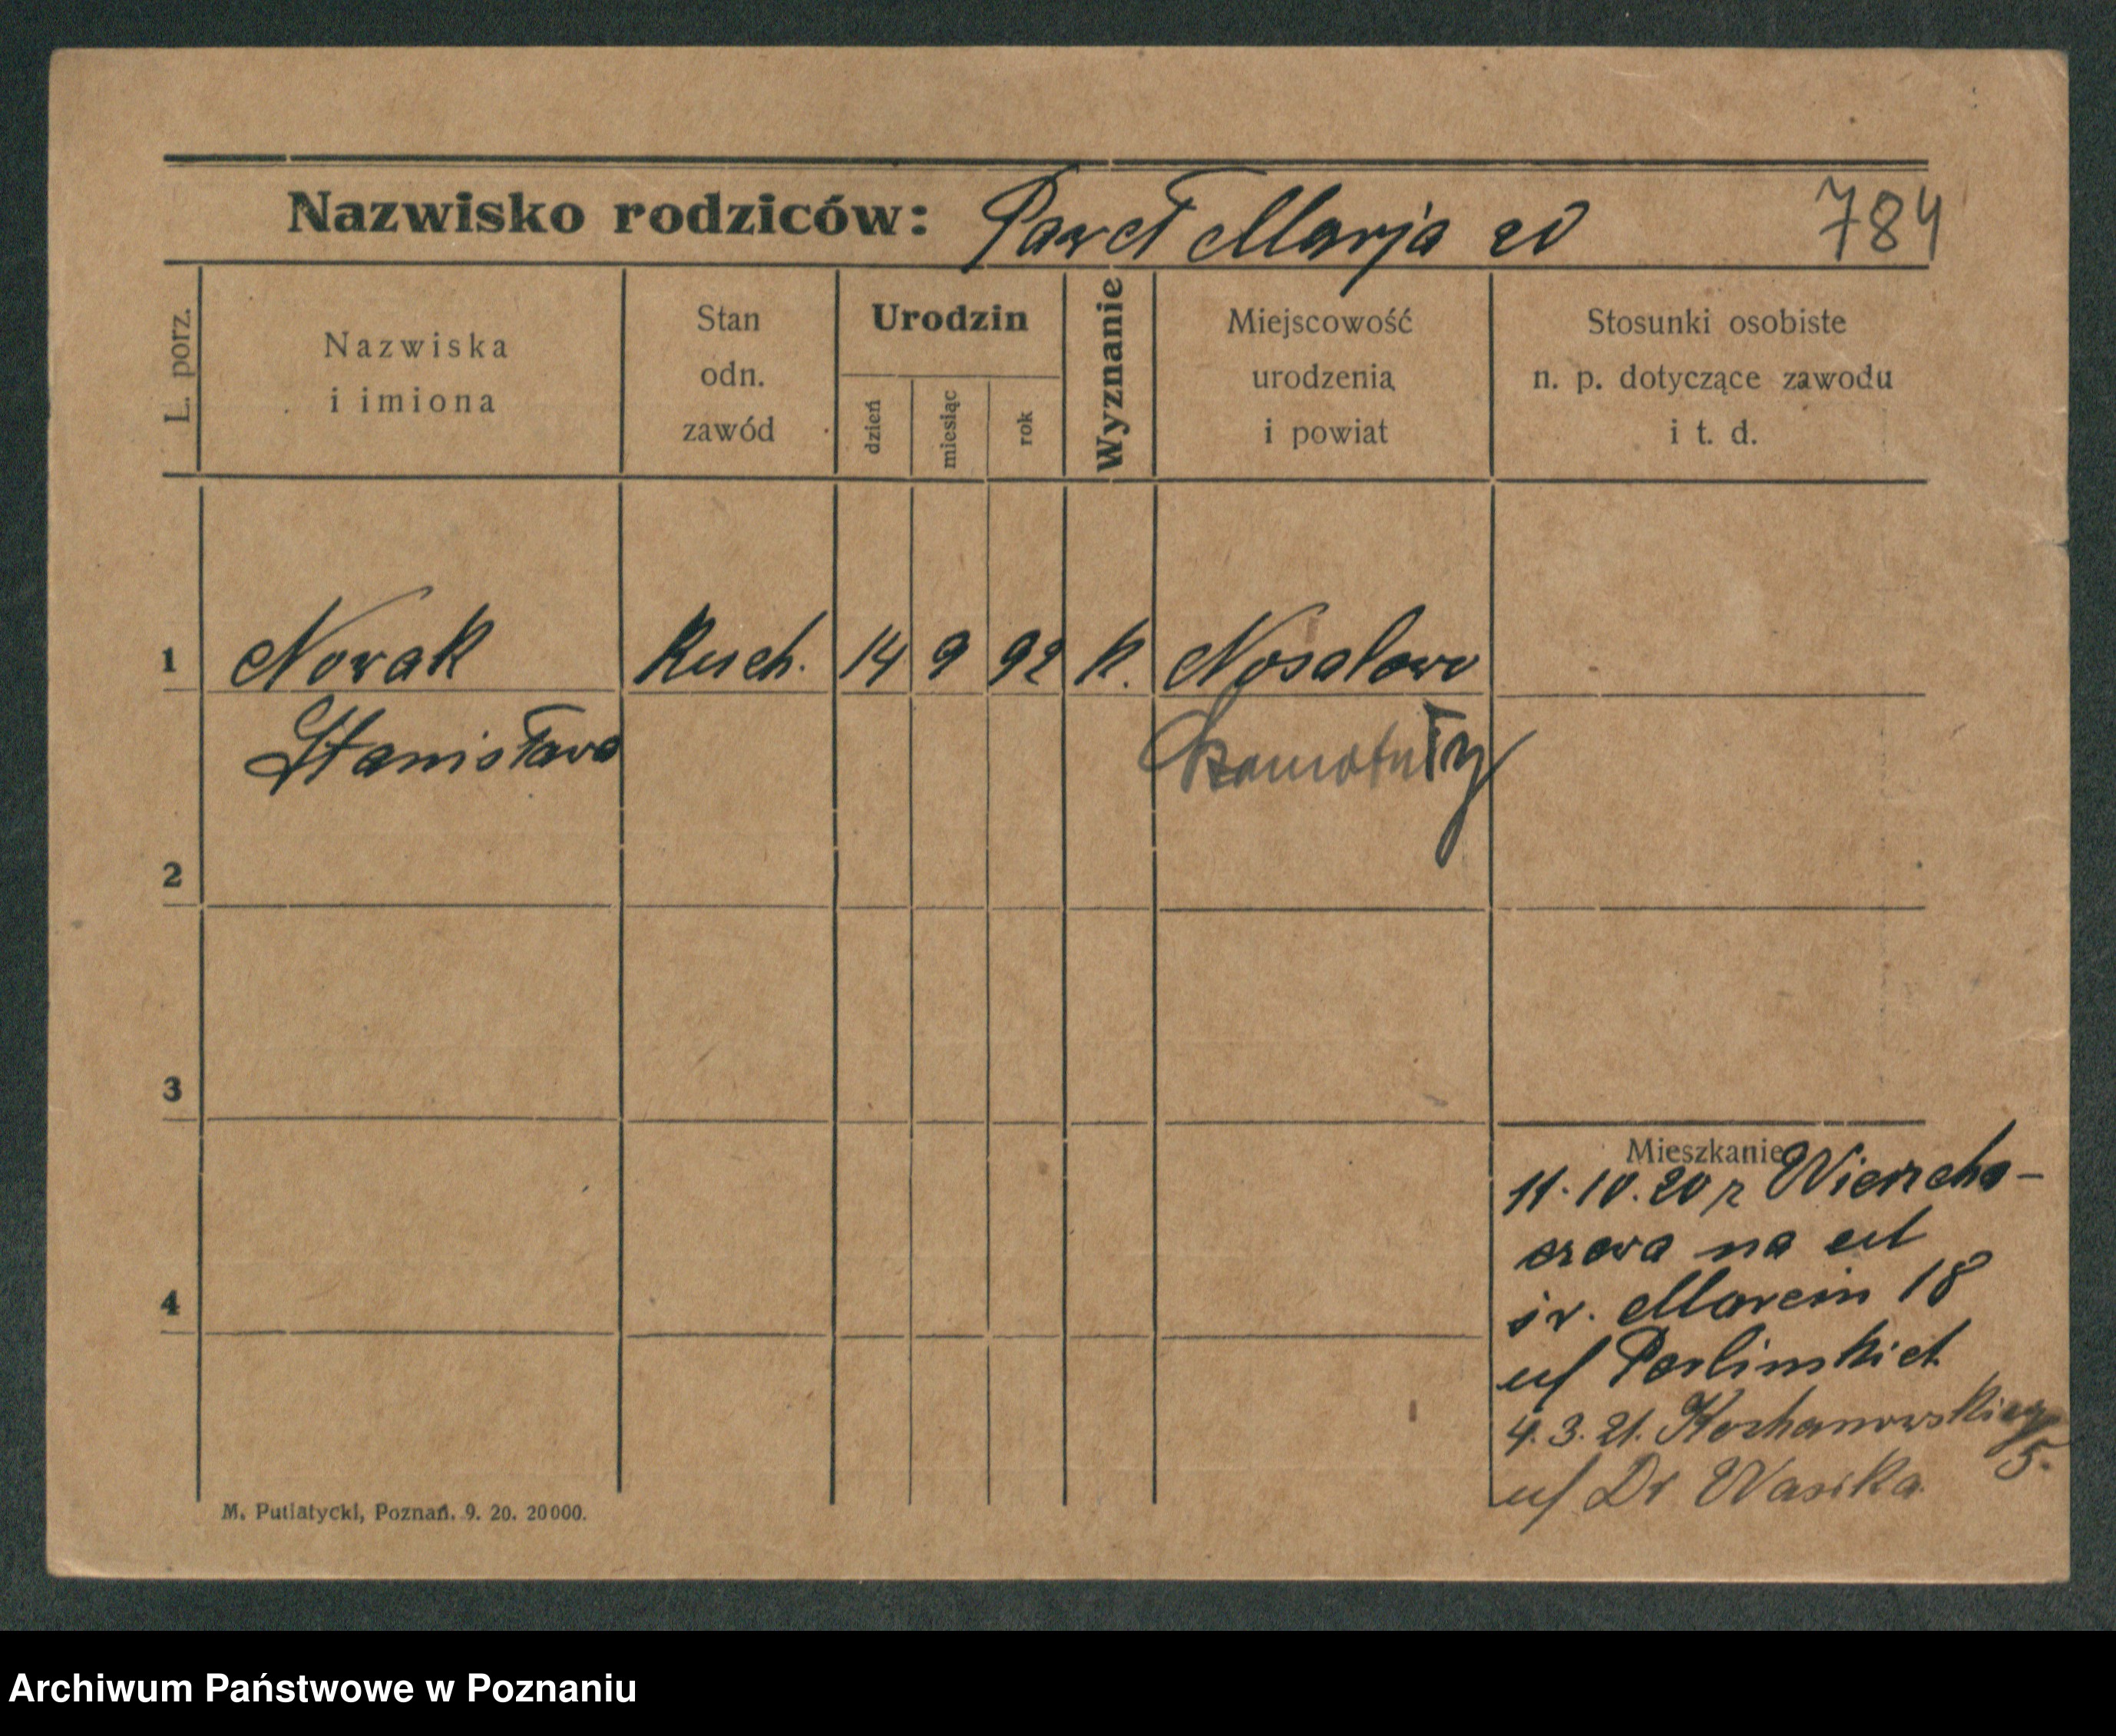 Nazwisko rodziców: Paweł Marja 784
L. porz.
Nazwiska i imiona
Stan odn. zawód
Urodzin
dzień
miesiąc
rok
Wyznanie
Miejscowość urodzenia i powiat
Stosunki osobiste n. p. dotyczące zawodu i t. d.
1 Nowak Kuch. 14 9 92 k. Nosalewo
Stanisława Szamotuły
2
3
4
Mieszkanie
11.10.20 r Wierzcho-
na ul
św. Marcin 18
u/
4.3.21. Kochanowskiego
5.
u/ Dr Wasika
M. Putiatycki, Poznań. 9. 20. 20000.
Archiwum Państwowe w Poznaniu